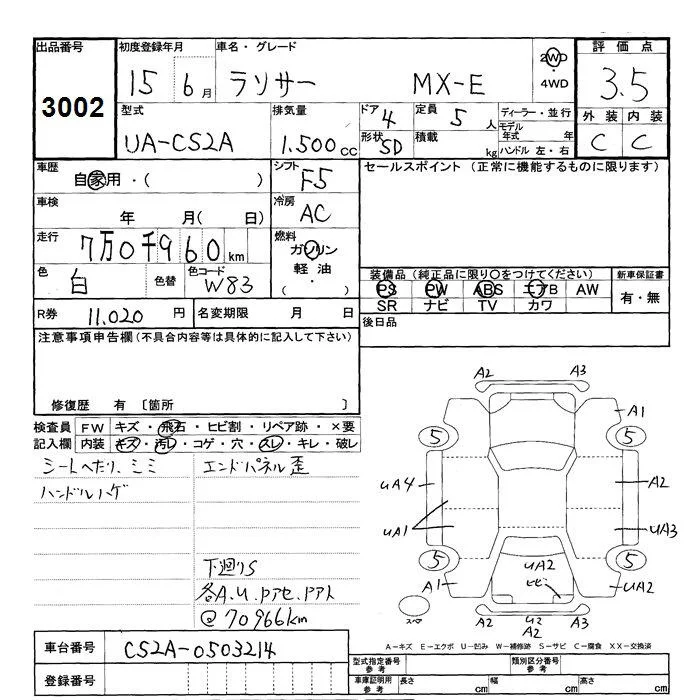 出品番号
3002
初度登録年月
15 6月
車名・グレード
ラソサー MX-E
2WD
・
4WD
評価点
3.5
外装 内装
C C
型式
UA-CS2A
排気量
1.500cc
ドア 4
形状 SD
定員 5人
積載 kg
ディーラー・並行
モデル年式 年
ハンドル 左・右
車歴
自家用・( )
シフト
F5
セールスポイント (正常に機能するものに限ります)
車検
年 月( 日)
冷房
AC
走行
7万0千960km
燃料
ガソリン
軽油
( ・ )
色
白
色替
色コード
W83
装備品 (純正品に限り○をつけてください)
PS PW ABS エアB AW
SR ナビ TV カワ
新車保証書
有・無
R券 11.020円
名変期限 月 日
後日品
注意事項申告欄(不具合内容等は具体的に記入して下さい)
修復歴 有 〔箇所 〕
検査員記入欄
FW キズ・飛石・ヒビ割・リペア跡・×要
内装 キズ・汚レ・コゲ・穴・スレ・キレ・破レ
シートヘたり、ミミ
ハンドルハゲ
エンドパネル歪
下廻りS
各A.U.Pアセ.Pアト
@70966km
A2 A3
A1
5 5
UA4 A2
UA1 UA3
5 5
A1 UA2
UA2
ヒビ
スペ
U2
A2
A3
車台番号
CS2A-0503214
登録番号
A-キズ E-エクボ U-凹み W-補修跡 S-サビ C-腐食 XX-交換済
型式指定番号
参考
類別区分番号
参考
車庫証明用
参考
長さ cm
幅 cm
高さ cm